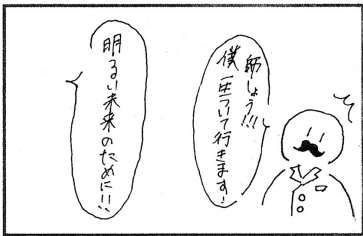 師しょう!!!
僕一生ついて行きます!
明るい未来のために!!